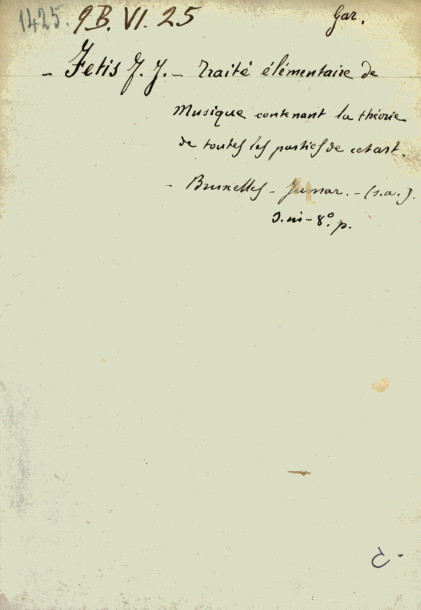 1425. 9B. VI. 25 Gar.
- Fetis F. J. - Traité élémentaire de
Musique contenant la théorie
de toutes les parties de cet art.
- Bruxelles - Jumar. - (s.a.).
in-8° p.